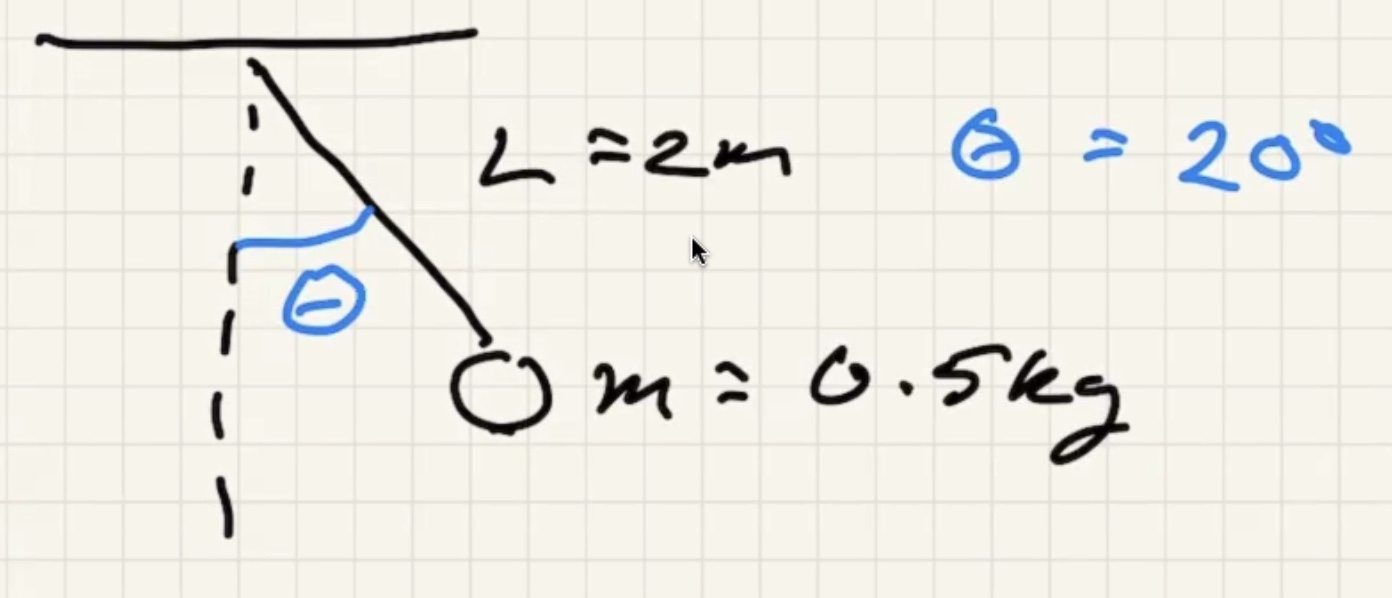 L = 2m
θ = 20°
θ
m = 0.5kg